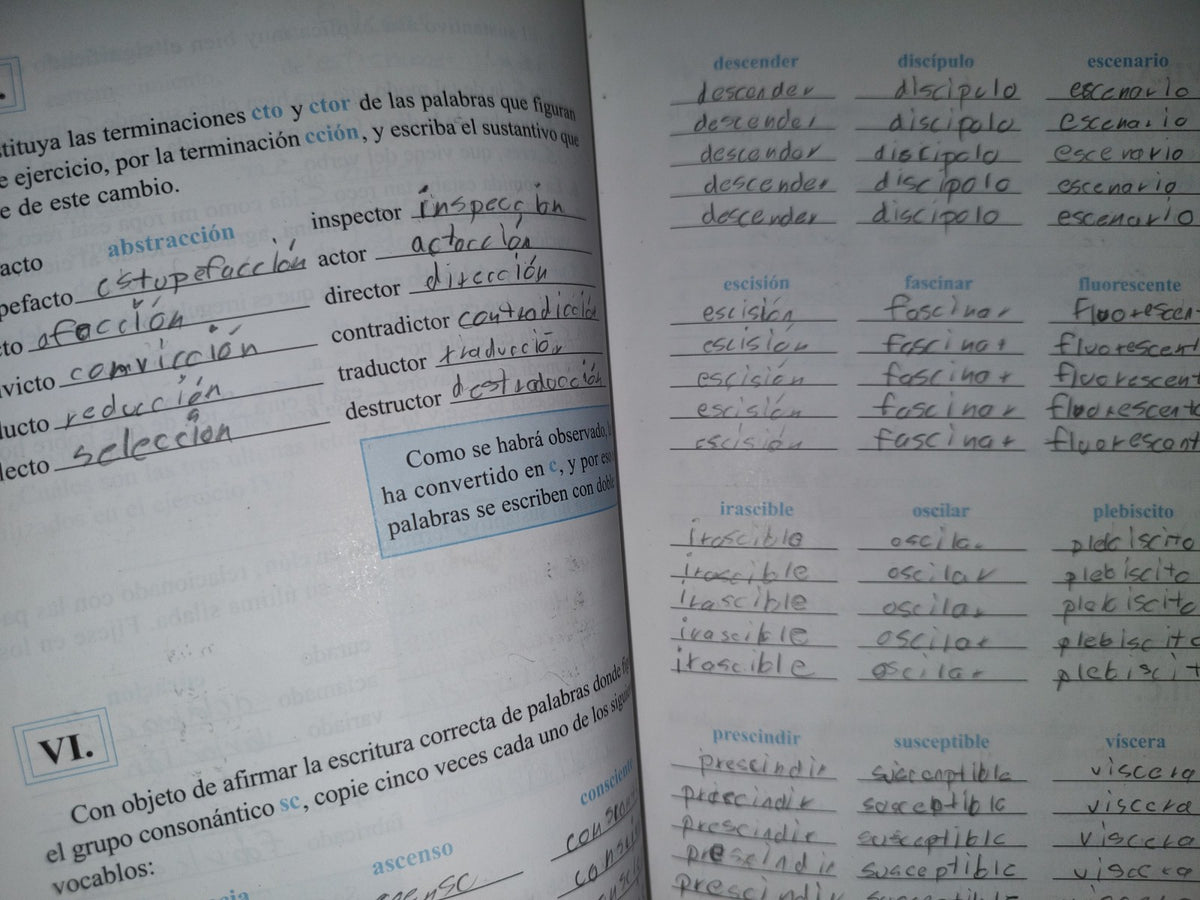 stituya las terminaciones cto y ctor de las palabras que figuran
e ejercicio, por la terminación cción, y escriba el sustantivo que
e de este cambio.
acto abstracción
pefacto estupefacción
cto afacción
victo comvicción
ducto reducción
lecto selección
inspector inspección
actor actocción
director dirección
contradictor contradicción
traductor traducción
destructor destraducción
Como se habrá observado,
ha convertido en c, y por eso
palabras se escriben con doble
VI.
Con objeto de afirmar la escritura correcta de palabras donde
el grupo consonántico sc, copie cinco veces cada uno de los
vocablos:
ascenso
consciente
descender discípulo escenario
descender discipulo escenario
descender discipolo escenario
descender discipolo escenario
descender discipolo escenario
descender discipolo escenario
escisión fascinar fluorescente
escisión fascinar fluorescen
escisión fascinar fluorescent
escisión fascinar fluorescent
escisión fascinar fluorescente
escisión fascinar fluorescent
irascible oscilar plebiscito
irascible oscilar plebiscito
irascible oscilar plebiscito
irascible oscilar plebiscito
irascible oscilar plebiscito
irascible oscilar plebiscit
prescindir susceptible víscera
prescindir susceptible viscera
prescindir susceptible viscera
prescindir susceptible viscera
prescindir susceptible viscera
prescindir